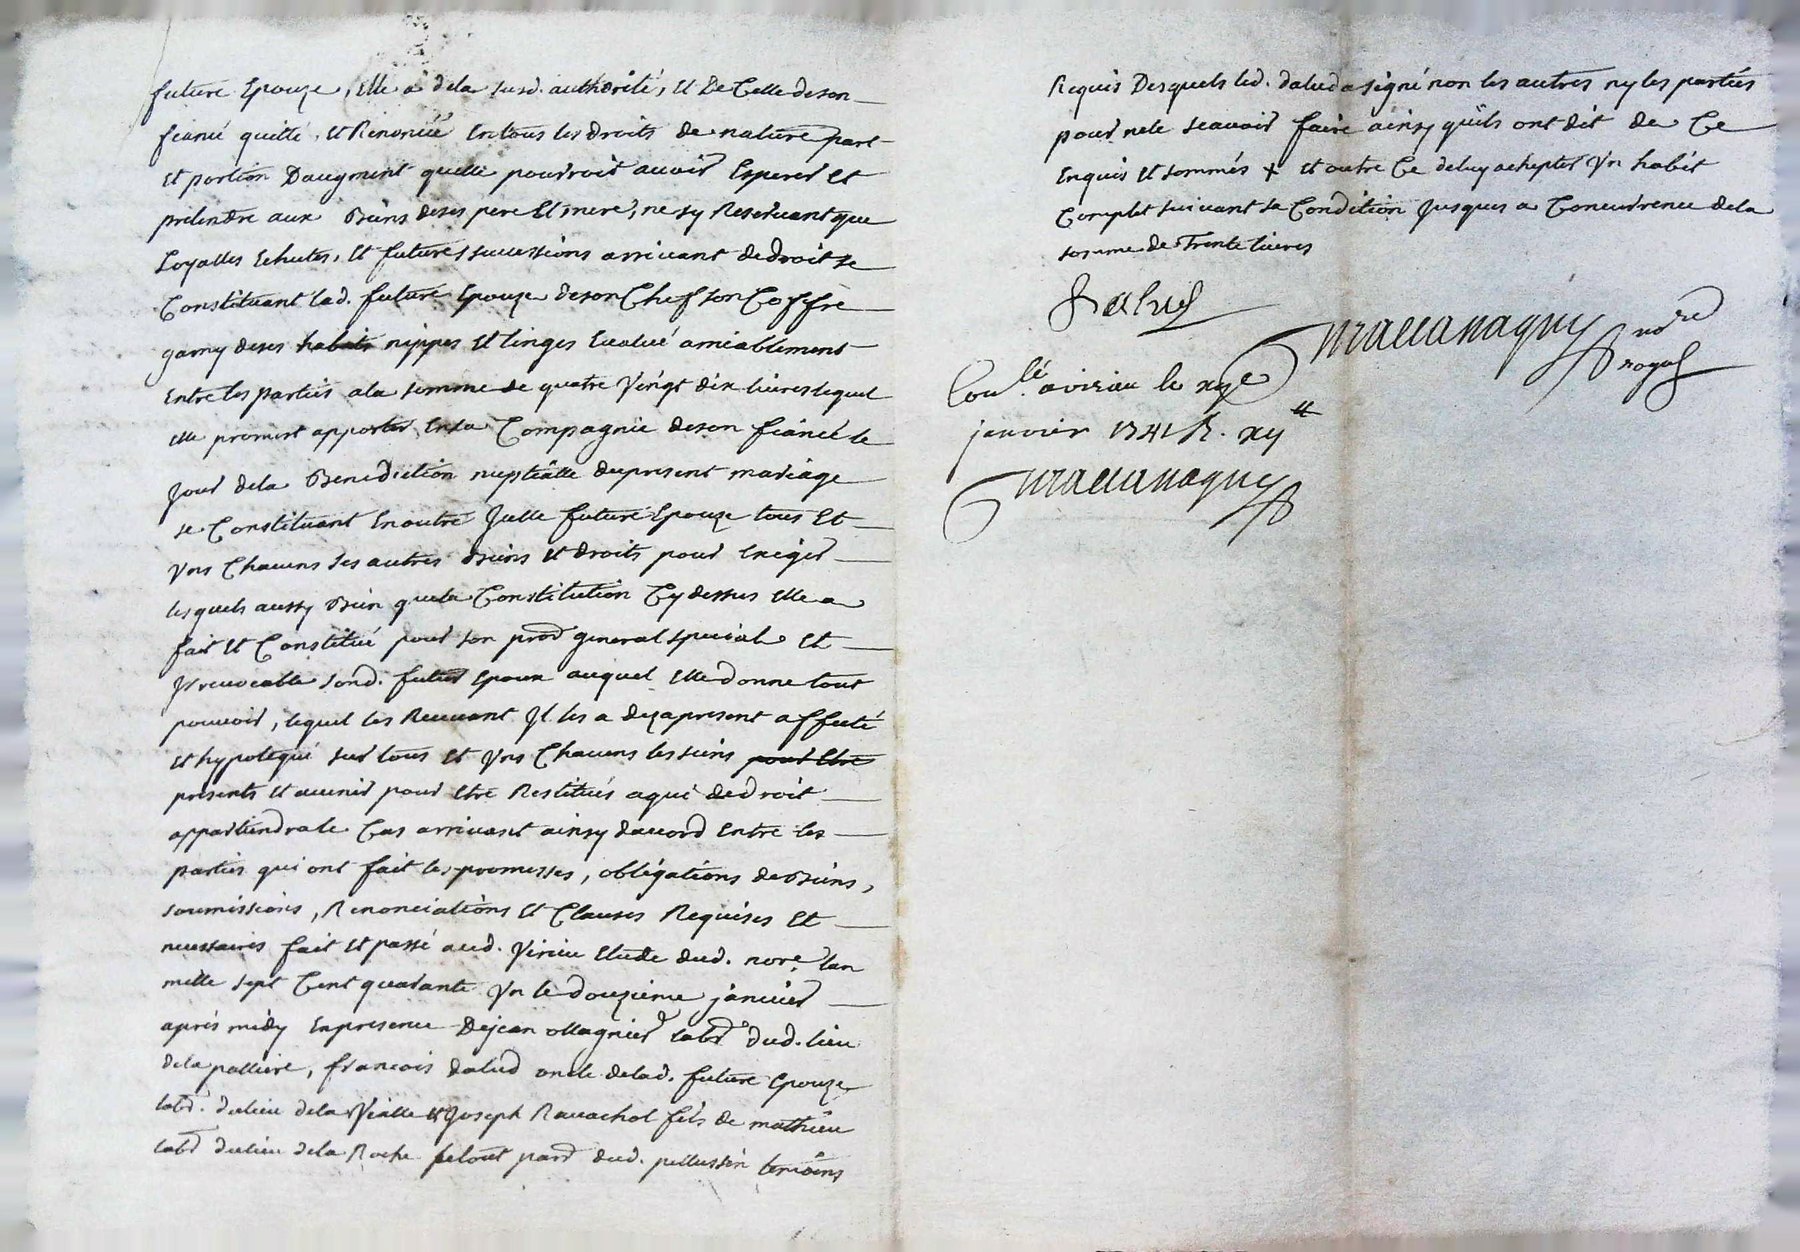 future Epouze, Elle a de la susd. authorité, Et De Celle de son
fiancé quitté, Et Renoncé En tous les droits de nature part
Et portion Daugment quelle pourroit auoir Esperer Et
pretendre aux Biens de ses pere Et mere, ne sy Reseruant que
Loyalles Echutes, Et futures successions arriuant de droit se
Constituant lad. future Epouze de son Chef son Coffre
garny de ses habits nippes Et linges Eualué amiablement
Entre les parties a la somme de quatre Vingt dix liures lequel
Elle promet apporter En la Compagnie de son fiancé le
Jour de la Benediction nuptialle du present mariage
se Constituant En outre Jcelle future Epouze tous Et
Vns Chacuns ses autres Biens Et droits pour Exiger
lesquels aussy Bien que la Constitution Cy dessus Elle a
fait Et Constitué pour son procr general special Et
Jrreuocable sond. futur Epoux auquel Elle donne tout
pouuoir, lequel les Receuant Jl les a deza present affecté
Et hypotequé sur tous Et Vns Chacuns les siens pour Etre
presents Et auenir pour Etre Restitués a qui de droit
appartiendra le Cas arriuant ainsy d'accord Entre les
parties qui ont fait les promesses, obligations de Biens,
soumissions, Renonciations Et Clauses Requises Et
necessaires fait Et passé aud. Virieu Etude dud. nore. lan
mille sept Cent quarante Vn le douzieme janvier
aprés midy En presence De jean ollagnier labr dud. lieu
de la palliere, francois dalud oncle de lad. future Epouze
labr. du lieu de la Vialle Et Joseph Rauachol fils de mathieu
labr du lieu de la Roche pelout parr dud. pellussin temoins
Requis Desquels led. dalud a signé non les autres ny les parties
pour ne le scauoir faire ainsy qu'ils ont dit de Ce
Enquis Et sommés + Et outre Ce de luy achepter Vn habit
Complet suiuant sa Condition Jusques a Concurrence de la
somme de Trente liures
Dalud
Maccanagny nore
royal
Conlé. a virieu le xije
janvier 1741 R. xij ll
Maccanagny